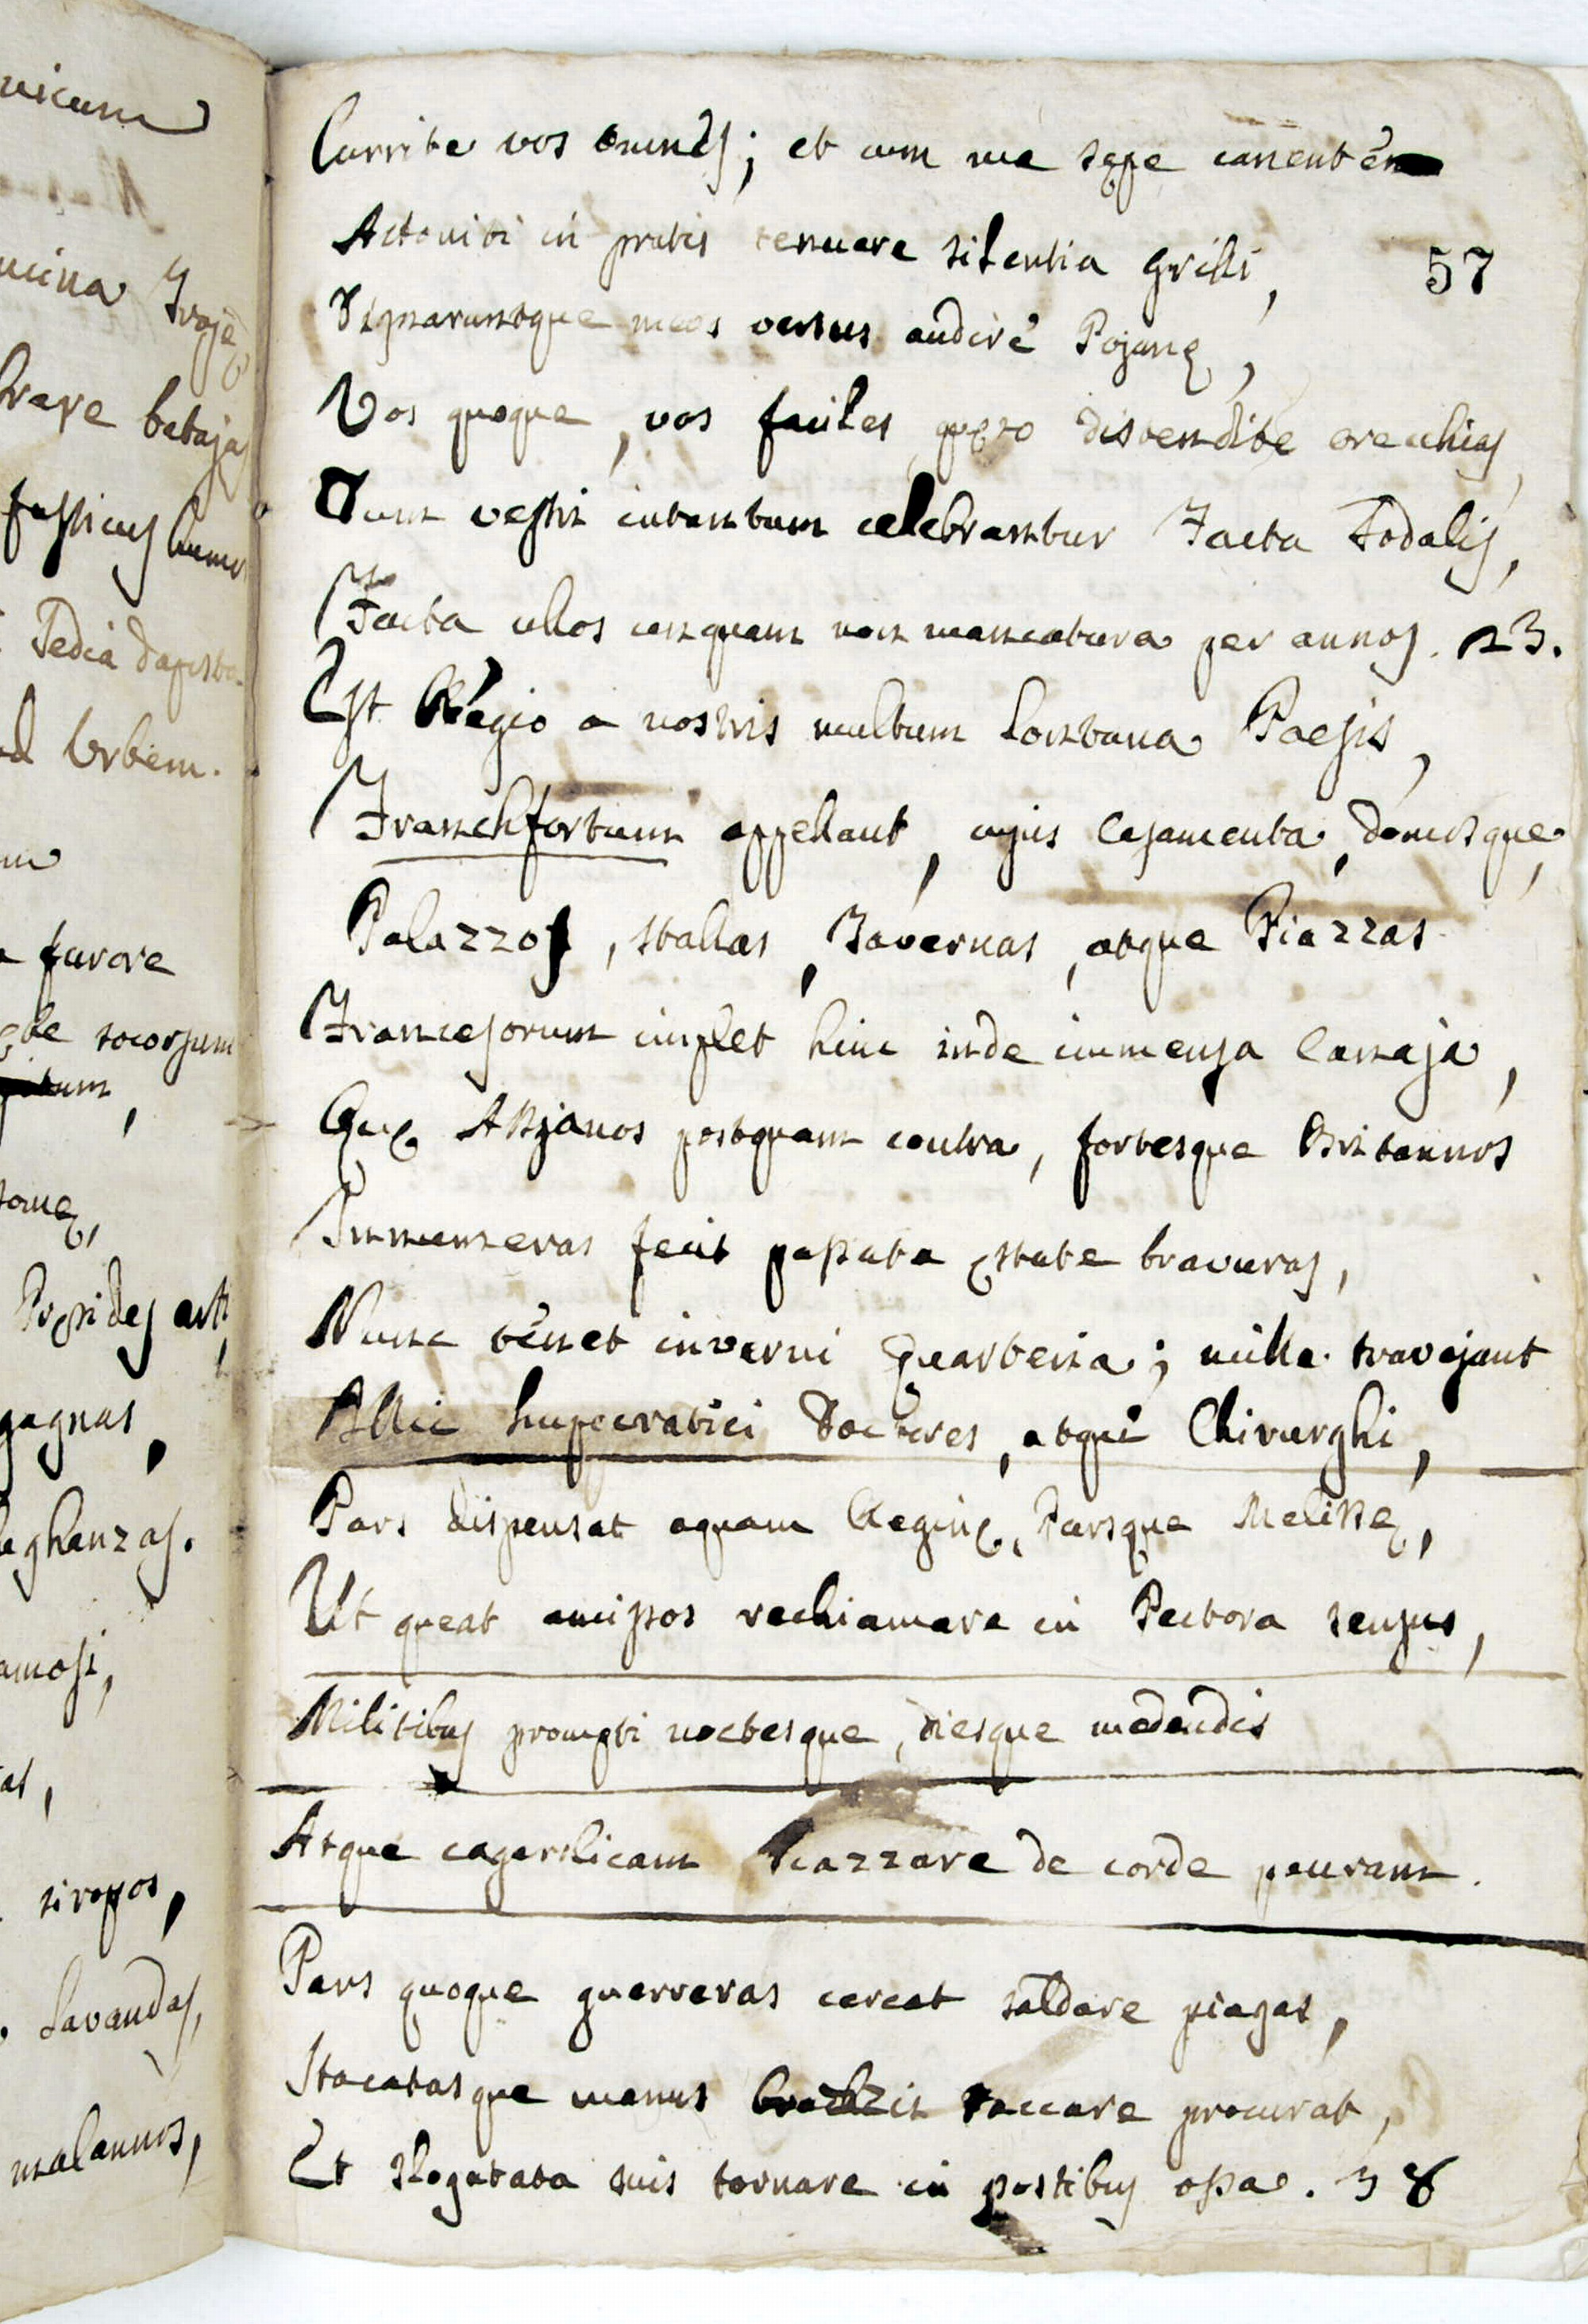 vicum
ucina Troje
brare bataja
Tedia
ad Urbem.
furore
socorsum
Presides
gagnas,
leghanzas.
amosi,
siropos,
Lavandas,
malannos,
Currite vos omnes; et cum me sępe canentem
Attoniti in pratis tenuere silentia Grilli,
57
Dignaruntque meos versus audire Pojanę,
Vos quoque, vos faciles quęso distendite orecchias,
Dum vestri intantum celebrantur Facta Sodalis,
Facta ullos unquam non mancatura per annos. 23.
Est Regio a nostris multum lontana Paesis,
Franchfortum appellant, cujus Casamenta, domosque,
Palazzos, stallas, Tavernas, atque Piazzas
Francesorum implet hinc inde immensa Canaja,
Quę Assianos postquam contra, fortesque Britannos
Innumeras fecit passata ęstate bravuras,
Nunc tenet inverni Quarteria; mille travajant
Illic hippocratici Doctores, atque Chirurghi,
Pars dispensat aquam Reginę, Parsque Melissę,
Ut queat amissos rechiamare in Pectora sensus,
Militibus prompti noctesque, diesque medendis
Atque cagarellicam scazzare de corde pauram.
Pars quoque guerreras cercat saldare piagas,
Stacatasque manus brazzis taccare procurat,
Et slogatata suis tornare in postibus ossa. 38